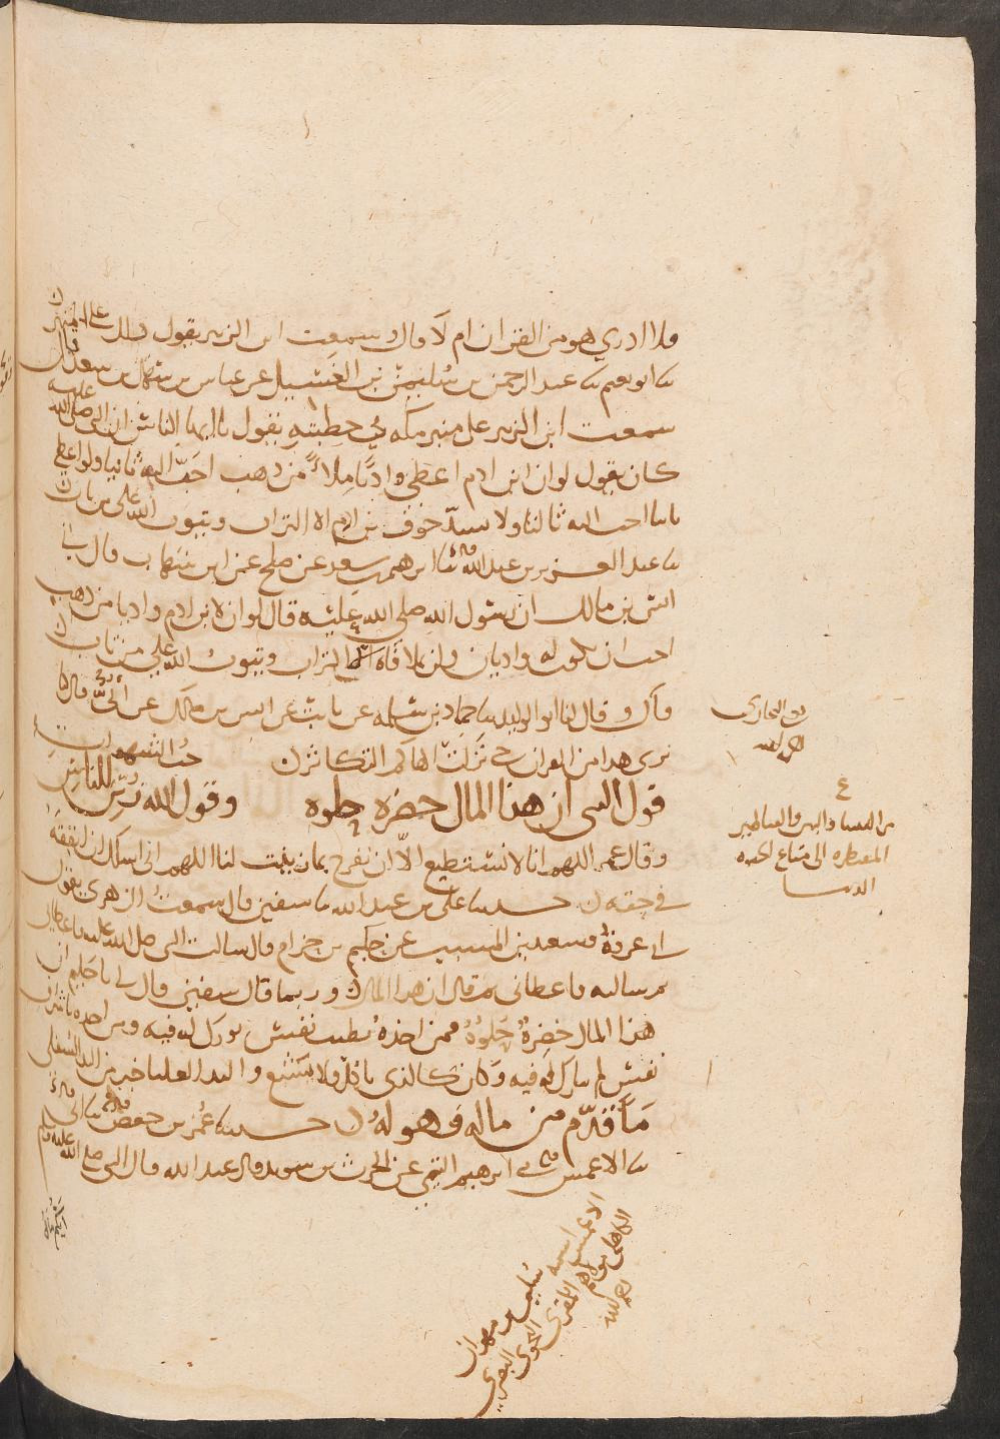 فلا ادري هو من القران ام لا قال وسمعت ابن الزبير يقول ذلك على المنبر
سا ابو نعيم سا عبد الرحمن بن سليمن بن الغسيل عن عباس بن سهل بن سعد قال
سمعت ابن الزبير على منبر مكه في خطبته يقول يا ايها الناس ان النبي صلى الله عليه
كان يقول لو ان ابن ادم اعطي واديا ملا من ذهب احب اليه ثانيا ولو اعطي
ثانيا احب اليه ثالثا ولا يسد جوف بن ادم الا التراب ويتوب الله على من تاب
سا عبد العزيز بن عبد الله سا ابرهيم بن سعد عن صلح عن ابن شهاب قال
انس بن مالك ان رسول الله صلى الله عليه قال لو ان لابن ادم واديا من ذهب
احب ان يكون له واديان ولن يملا فاه الا التراب ويتوب الله على من تاب
قال وقال لنا ابو الوليد سا حماد بن سلمه عن ثابت عن انس بن مالك عن ابي قال كنا
نرى هذا من القران حتى نزلت الهاكم التكاثر
قول النبي ان هذا المال خضره حلوه وقول الله زين للناس حب الشهوات
وقال عمر اللهم انا لا نستطيع الا ان نفرح بما زينت لنا اللهم اني اسالك ان انفقه
في حقه حدثنا علي بن عبد الله سا سفين قال سمعت الزهري يقول
عروة وسعيد بن المسيب عن حكيم بن حزام قال سالت النبي صلى الله عليه فاعطاني
ثم سالته فاعطاني ثم قال ان هذا المال وربما قال سفين قال لي يا حكيم ان
هذا المال خضرة حلوة فمن اخذه بطيب نفس بورك له فيه ومن اخذه باشراف
نفس لم يبارك له فيه وكان كالذي ياكل ولا يشبع واليد العليا خير من اليد السفلى
ما قدم من ماله فهو له حدثنا عمر بن حفص سا ابي
سا الاعمش ابرهيم التيمي عن الحرث بن سويد قال عبد الله قال النبي صلى الله عليه وسلم
ايكم مال
البخاري
رحمه الله
من النساء والبنين والقناطير
المقنطره الى متاع الحيوه
الدنيا
الاعمش اسمه
سليمن بن مهران
الكاهلي مولاهم
المقرئ